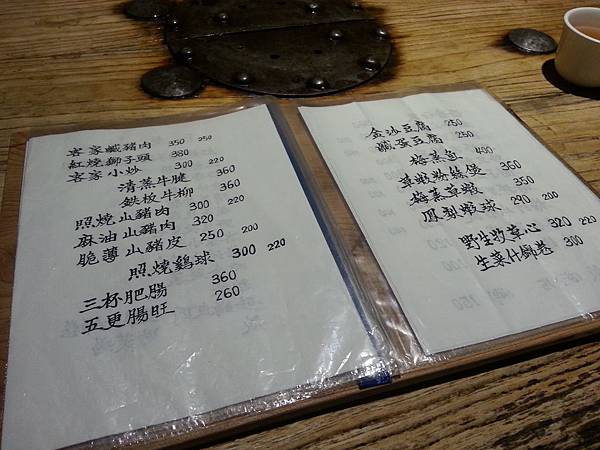 客家鹹豬肉 350 250
紅燒獅子頭 380
客家小炒 300 220
清蒸牛腱 360
鉄板牛柳 360
照燒山豬肉 300 220
麻油山豬肉 320
脆薄山豬皮 250 200
照燒鷄球 300 220
三杯肥腸 360
五更腸旺 260
金沙豆腐 250
鹹蛋豆腐 250
梅蒸魚 400
草蝦粉絲煲 360
梅蒸草蝦 350
鳳梨蝦球 290 200
野生炒真心 320 220
生菜什錦卷 300